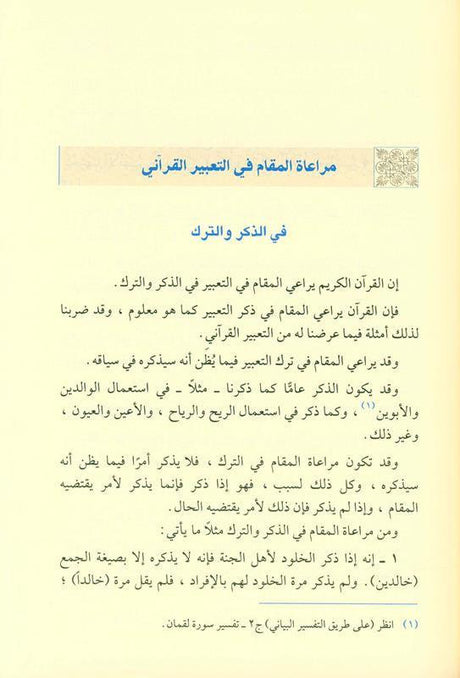 مراعاة المقام في التعبير القرآني
في الذكر والترك
إن القرآن الكريم يراعي المقام في التعبير في الذكر والترك.
فإن القرآن يراعي المقام في ذكر التعبير كما هو معلوم ، وقد ضربنا
لذلك أمثلة فيما عرضنا له من التعبير القرآني.
وقد يراعي المقام في ترك التعبير فيما يُظَن أنه سيذكره في سياقه.
وقد يكون الذكر عامًّا كما ذكرنا ـ مثلاً ـ في استعمال الوالدين
والأبوين(١) ، وكما ذكر في استعمال الريح والرياح ، والأعين والعيون ،
وغير ذلك.
وقد تكون مراعاة المقام في الترك ، فلا يذكر أمرًا فيما يظن أنه
سيذكره ، وكل ذلك لسبب ، فهو إذا ذكر فإنما يذكر لأمر يقتضيه
المقام ، وإذا لم يذكر فإن ذلك لأمر يقتضيه الحال.
ومن مراعاة المقام في الذكر والترك مثلاً ما يأتي:
١ ـ إنه إذا ذكر الخلود لأهل الجنة فإنه لا يذكره إلا بصيغة الجمع
(خالدين). ولم يذكر مرة الخلود لهم بالإفراد ، فلم يقل مرة (خالداً) ؛
(١) انظر (على طريق التفسير البياني) ج٢ ـ تفسير سورة لقمان.